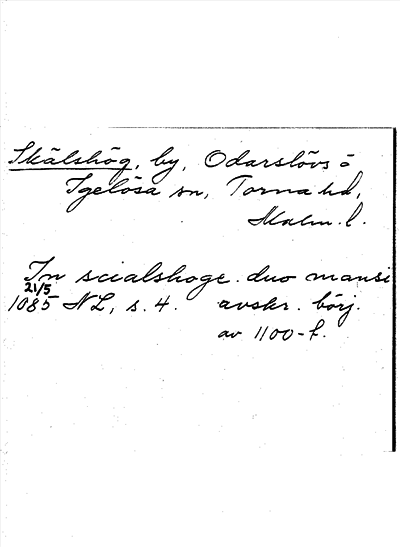 Skälshög, by, Odarslövs o
Igelösa sn, Torna hd,
Malm. l.
In scialshoge. duo mansi
21/5
1085 NL, s. 4. avskr. börj.
av 1100-t.